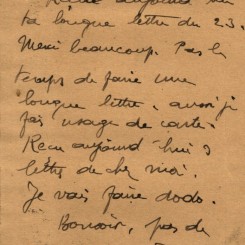 ta longue lettre du 23.
Merci beaucoup. Pas le
temps de faire une
longue lettre, aussi je
fais usage de carte.
Recu aujourd'hui 3
lettres de chez moi.
Je vais faire dodo.
Bonsoir, pas de